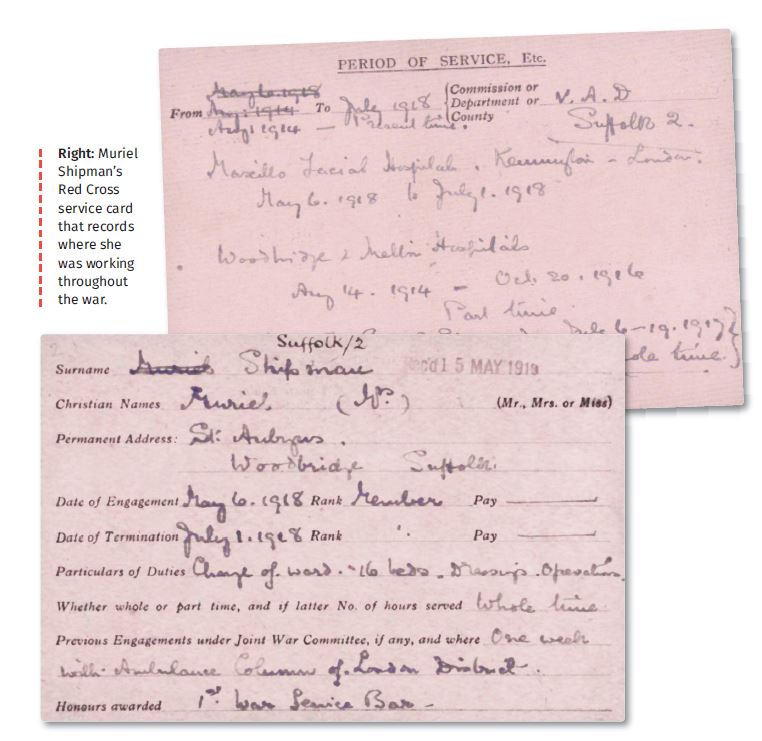 Right: Muriel
Shipman's
Red Cross
service card
that records
where she
was working
throughout
the war.
PERIOD OF SERVICE, Etc.
May 6. 1918
From Aug. 1914 To July 1918 Commission or Department or County V. A. D
Aug 1914 — Present time. Suffolk 2.
Facial Hospital, Kennington - London.
May 6. 1918 to July 1. 1918
Woodbridge & Hospitals
Aug 14. 1914 - Oct. 20. 1916
Part time
6-19. 1917
time.
Suffolk/2
Surname Muriel Shipman Rec'd 15 MAY 1919
Christian Names Muriel. (Mrs.) (Mr., Mrs. or Miss)
Permanent Address: St.
Woodbridge Suffolk.
Date of Engagement May 6. 1918 Rank Member Pay
Date of Termination July 1. 1918 Rank " Pay
Particulars of Duties Charge of ward. 16 beds. Dressings. Operations.
Whether whole or part time, and if latter No. of hours served Whole time
Previous Engagements under Joint War Committee, if any, and where One week
with Ambulance Column of London District.
Honours awarded 1st War Service Bar -